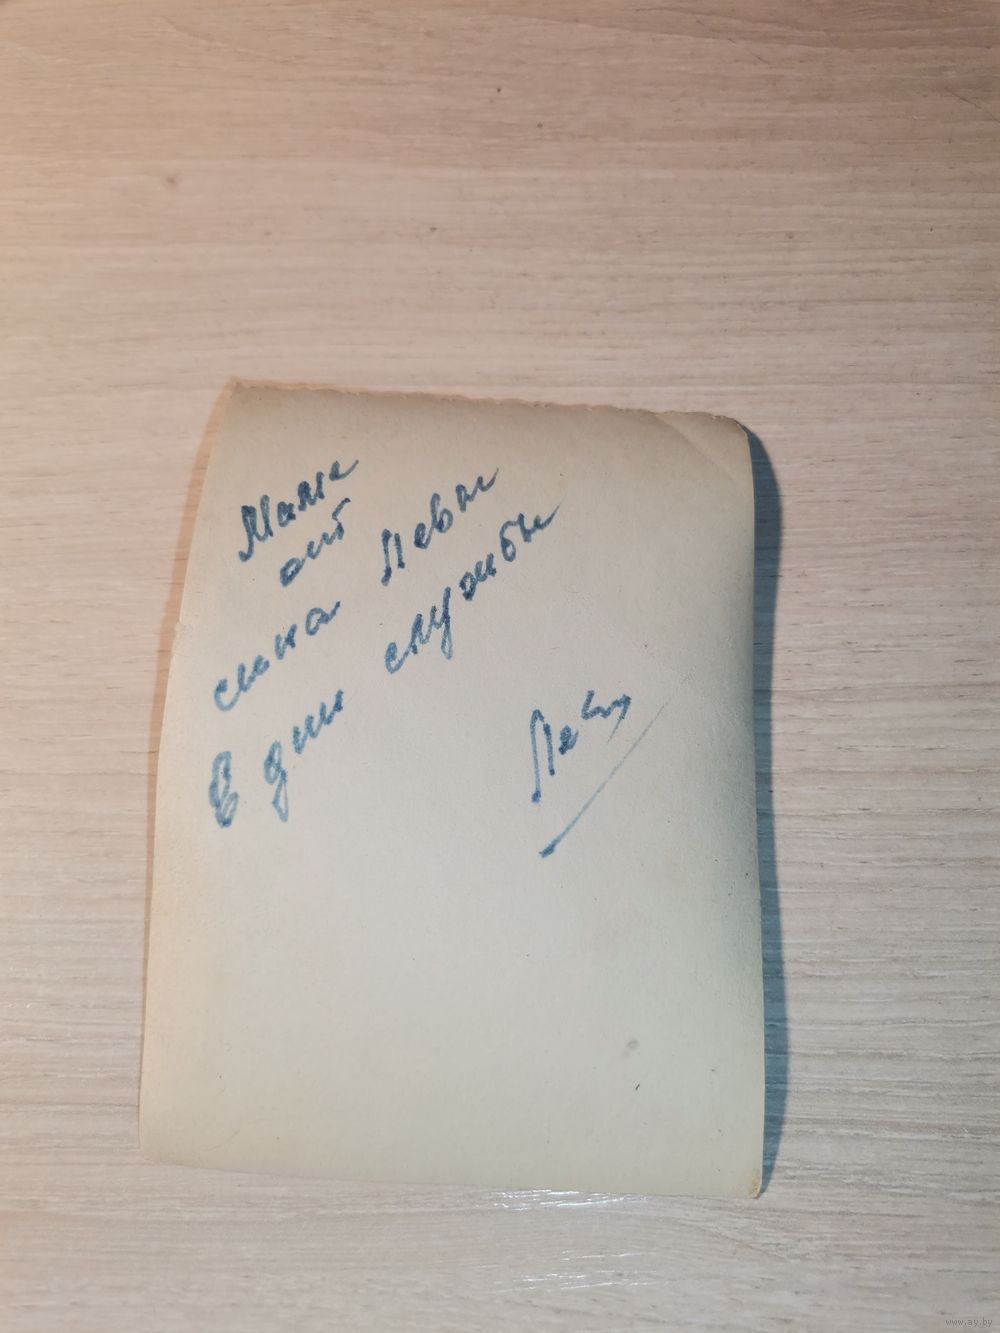 Маме
от
сына Левы
В дни службы
Лева
www.ay.by